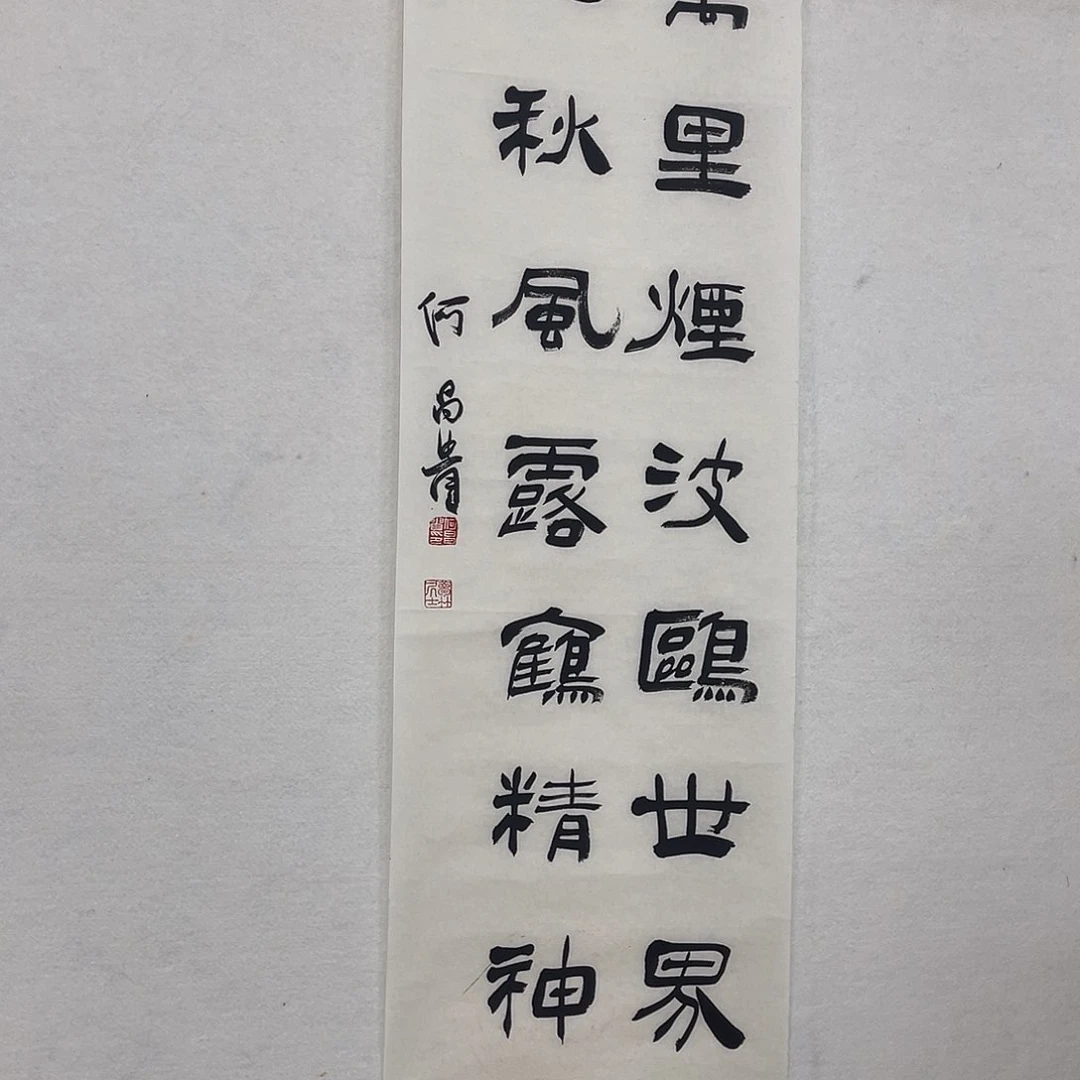 萬里煙波鷗世界
秋風露鶴精神
何昌貴